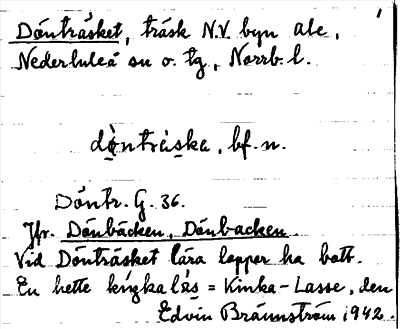 Dönträsket, träsk N.V. byn Ale,
Nederluleå sn o. tg, Norrb. l.
dö̀nträska, bf. n.
Döntr. G. 36.
Jfr. Dönbäcken, Dönbacken
Vid Dönträsket lära lapper ha bott.
En hette kıŋka lás = Kinka-Lasse, den
Edvin Brännström 1942.